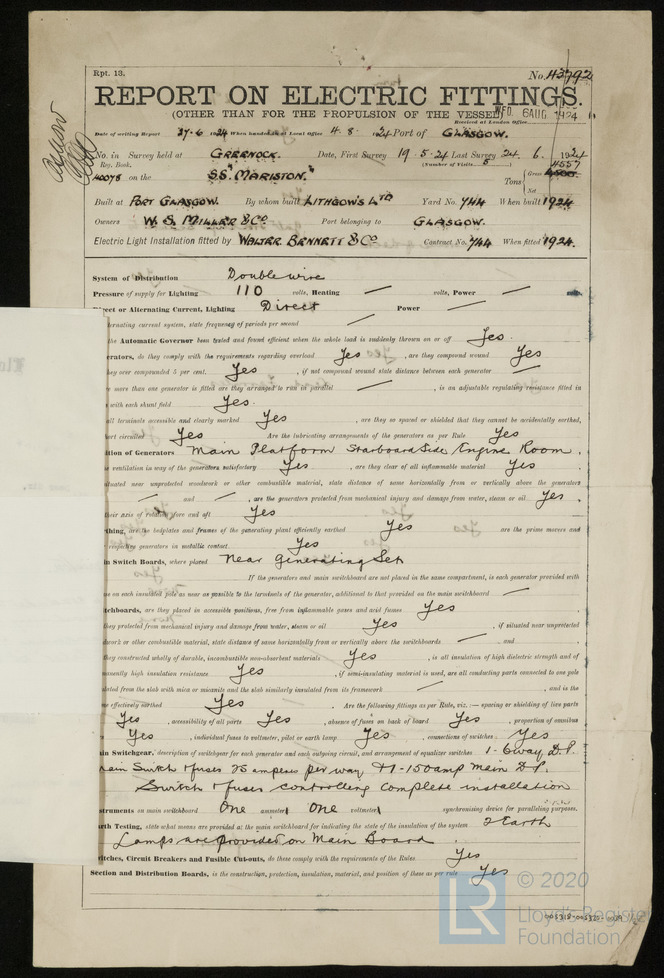 Rpt. 13.
No. 43792
REPORT ON ELECTRIC FITTINGS.
(OTHER THAN FOR THE PROPULSION OF THE VESSEL)
WED. 6 AUG 1924
Received at London Office
Date of writing Report 27.6.1924 When handed in at Local Office 4.8.1924 Port of GLASGOW.
No. in Survey held at GREENOCK. Date, First Survey 19.5.24 Last Survey 24.6.1924
Reg. Book. (Number of Visits 5
40078 on the SS "MARISTON." Tons Gross 4557
Net
Built at PORT GLASGOW. By whom built LITHGOWS LTD Yard No. 744 When built 1924
Owners W. S. MILLER & CO Port belonging to GLASGOW.
Electric Light Installation fitted by WALTER BENNETT & CO Contract No. 744 When fitted 1924.
System of Distribution Double wire
Pressure of supply for Lighting 110 volts, Heating — volts, Power — volts.
Direct or Alternating Current, Lighting Direct Power —
ternating current system, state frequency of periods per second —
the Automatic Governor been tested and found efficient when the whole load is suddenly thrown on or off Yes.
erators, do they comply with the requirements regarding overload Yes, are they compound wound Yes
they over compounded 5 per cent. Yes, if not compound wound state distance between each generator —
more than one generator is fitted are they arranged to run in parallel —, is an adjustable regulating resistance fitted in
with each shunt field Yes.
all terminals accessible and clearly marked Yes, are they so spaced or shielded that they cannot be accidentally earthed,
rt circuited Yes Are the lubricating arrangements of the generators as per Rule Yes
ition of Generators Main Platform Starboard Side Engine Room.
e ventilation in way of the generators satisfactory Yes, are they clear of all inflammable material Yes.
ituated near unprotected woodwork or other combustible material, state distance of same horizontally from or vertically above the generators
— and —, are the generators protected from mechanical injury and damage from water, steam or oil Yes.
their axis of rotation fore and aft Yes
thing, are the bedplates and frames of the generating plant efficiently earthed Yes are the prime movers and
respective generators in metallic contact Yes
in Switch Boards, where placed Near Generating Set
If the generators and main switchboard are not placed in the same compartment, is each generator provided with
se on each insulated pole as near as possible to the terminals of the generator, additional to that provided on the main switchboard —
tchboards, are they placed in accessible positions, free from inflammable gases and acid fumes Yes
hey protected from mechanical injury and damage from water, steam or oil Yes, if situated near unprotected
dwork or other combustible material, state distance of same horizontally from or vertically above the switchboards — and
they constructed wholly of durable, incombustible non-absorbent materials Yes, is all insulation of high dielectric strength and of
manently high insulation resistance Yes, if semi-insulating material is used, are all conducting parts connected to one pole
lated from the slab with mica or micanite and the slab similarly insulated from its framework —, and is the
me effectively earthed Yes Are the following fittings as per Rule, viz.:— spacing or shielding of live parts
Yes, accessibility of all parts Yes, absence of fuses on back of board Yes, proportion of omnibus
Yes, individual fuses to voltmeter, pilot or earth lamp Yes, connections of switches Yes
ain Switchgear, description of switchgear for each generator and each outgoing circuit, and arrangement of equalizer switches 1-6 way D.P.
main Switch & fuses 25 amperes per way & 1-150 amp Main D.P.
Switch & fuses controlling complete installation
struments on main switchboard One ammeter One voltmeter synchronising device for paralleling purposes.
arth Testing, state what means are provided at the main switchboard for indicating the state of the insulation of the system 2 Earth
Lamps are provided on Main Board
witches, Circuit Breakers and Fusible Cut-outs, do these comply with the requirements of the Rules Yes
Section and Distribution Boards, is the construction, protection, insulation, material, and position of these as per rule Yes
LR
© 2020
Lloyd's Register
Foundation